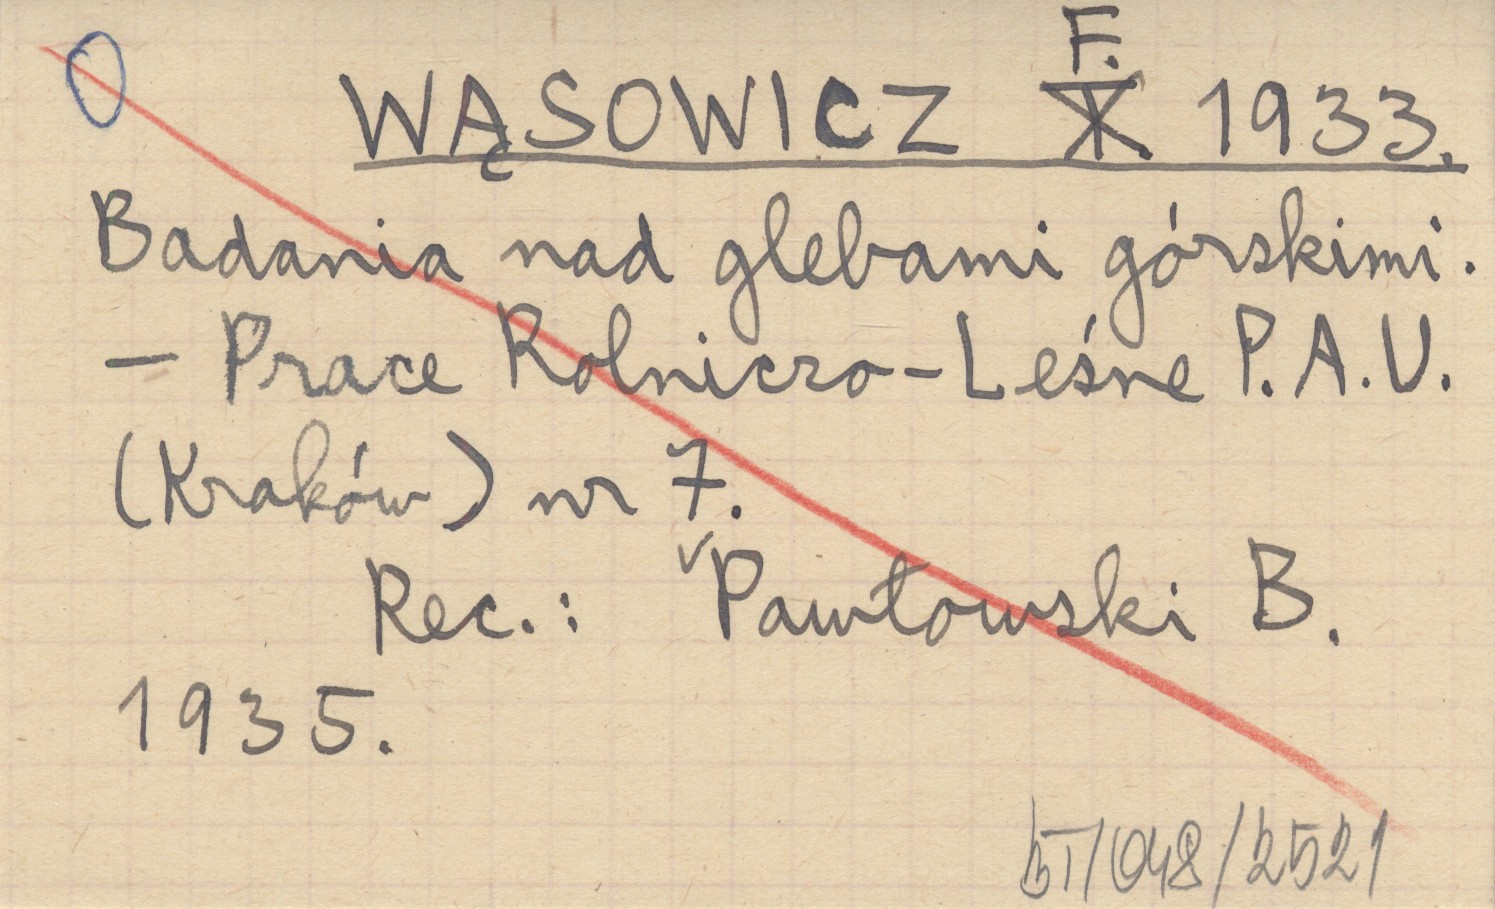 WĄSOWICZ F. 1933.
Badania nad glebami górskimi.
— Prace Rolniczo-Leśne P.A.U.
(Kraków) nr 7.
Rec.: Pawłowski B.
1935.
BT/048/2521